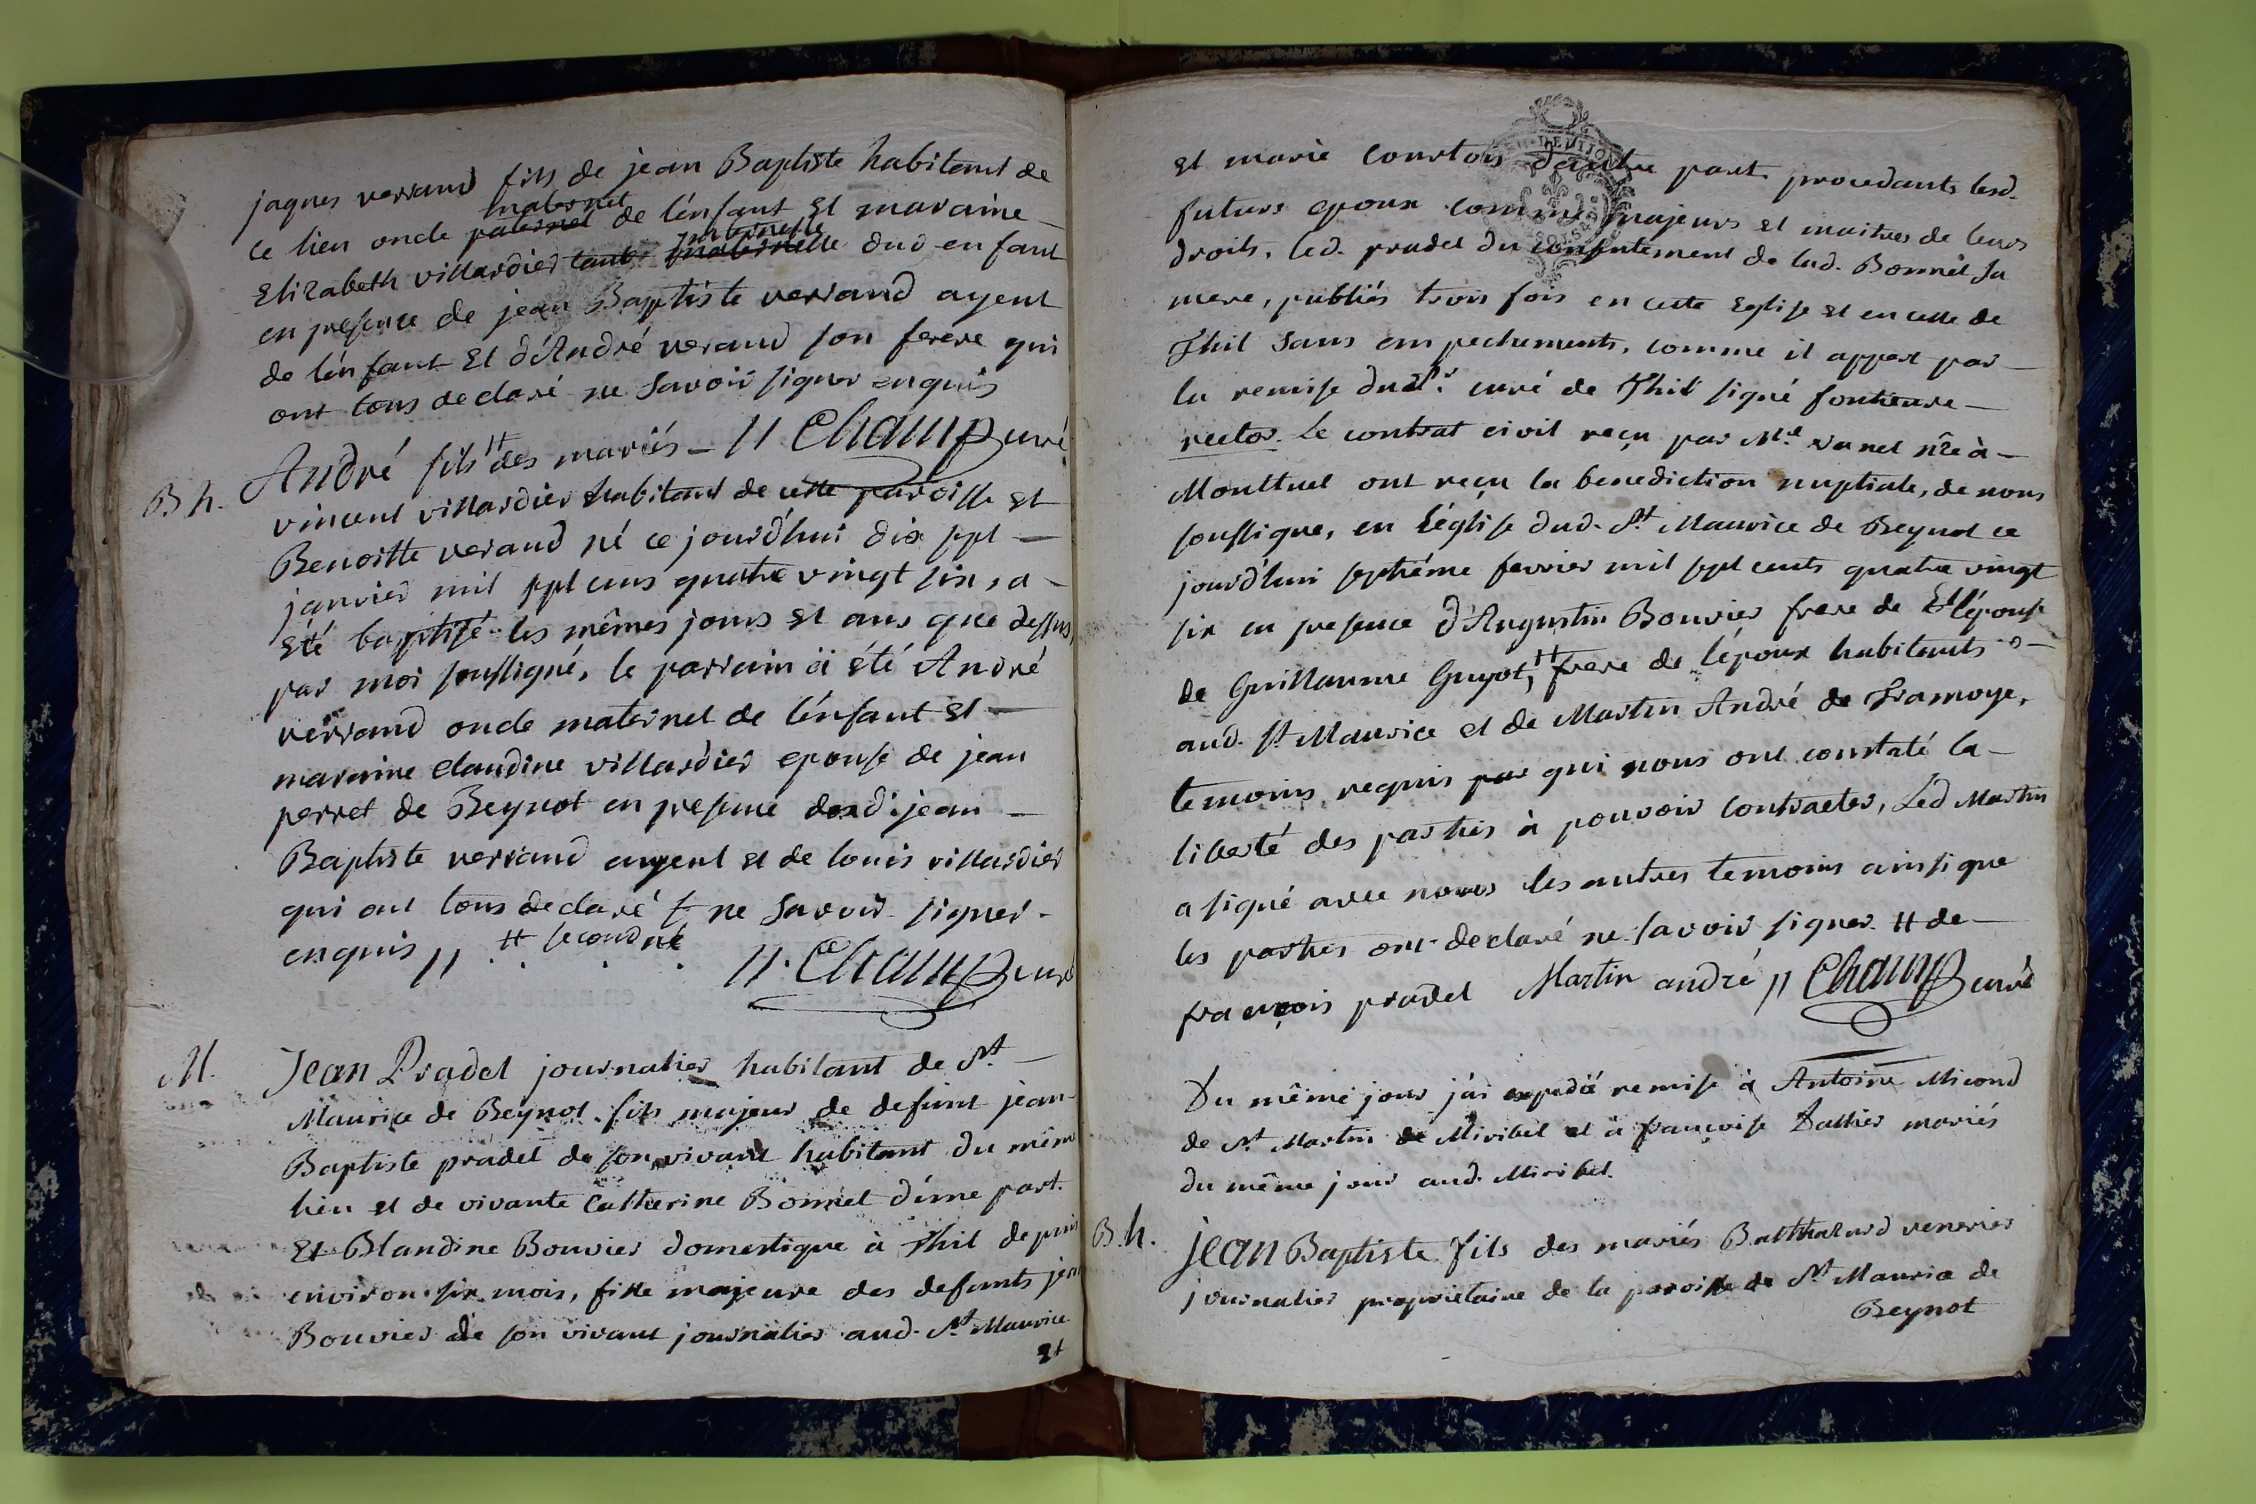 jaques verrand fils de jean Baptiste habitant de
maternel
ce lieu oncle paternel de l'enfant et maraine
paternelle
Elizabeth villardier tante maternelle dud enfant
en presence de jean Baptiste verrand ayeul
de l'enfant et d'André verand son frere qui
ont tous declaré ne savoir signer enquis
// Champ curé
B h. André fils # des mariés -
vincent villardier habitant de cette paroisse et
Benoitte verand né ce jourd'hui dix sept -
janvier mil sept cens quatre vingt six, a -
été baptisé les mêmes jours et ans que dessus,
par moi soussigné, le parrain a été André
verrand oncle maternel de l'enfant et -
maraine claudine villardier epouse de jean
perret de Beynot en presence dud. jean -
Baptiste verrand ayeul et de louis villardier
qui ont tous declaré ne savoir signer -
enquis // # second né // Champ curé
M. Jean Pradel journalier habitant de St
Maurice de Beynot fils majeur de defunt jean-
Baptiste pradel de son vivant habitant du même
lieu et de vivante Catherine Bonnet d'une part.
Et Blandine Bouvier domestique à Thil depuis
environ six mois, fille majeure des defunts jean
Bouvier de son vivant journalier aud. St Maurice
et
et marie courtois d'autre part procedants lesd.
futurs epoux comme majeurs et maitres de leurs
droits, led. pradel du consentement de lad. Bonnet sa
mere, publiés trois fois en cette Eglise et en celle de
Thil sans empechements, comme il appert par -
la remise du Sr. curé de Thil signé
rector. Le contrat civil reçu par Me. vanel nre à -
Montluel ont reçu la benediction nuptiale, de nous
soussigné, en l'église dud. St Maurice de Beynot ce
jourd'hui septiéme fevrier mil sept cents quatre vingt
six en presence d'Augustin Bouvier frere de l'épouse Et
de Guillaume Guyot, # frere de l'époux habitants -
aud. St Maurice et de Martin André de Tramoye,
temoins requis par qui nous ont constaté la -
liberté des parties à pouvoir contracter, Led Martin
a signé avec nous les autres temoins ainsi que
les parties ont declaré ne savoir signer # de -
françois pradel Martin andré // Champ curé
Du même jour j'ai expedié remise à Antoine Micond
de St Martin de Miribel et à françoise mariés
du même jour aud. Miribel.
B. h. jean Baptiste fils des mariés Balthazard venerier
journalier proprietaire de la paroisse de St Maurice de
Beynot